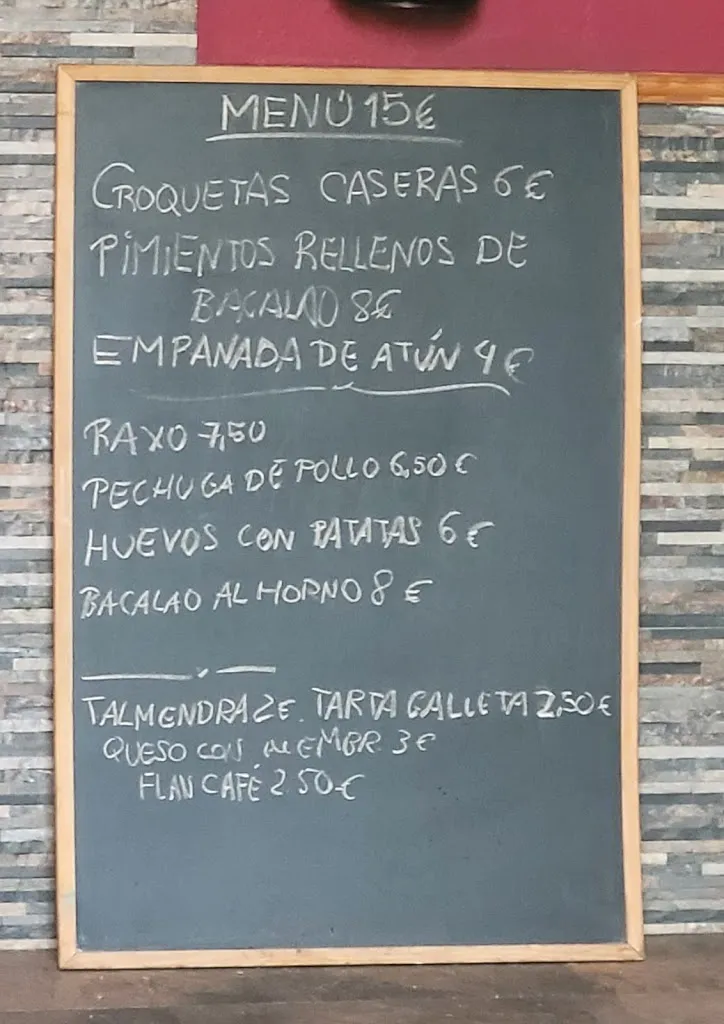 MENÚ 15€
CROQUETAS CASERAS 6€
PIMIENTOS RELLENOS DE
BACALAO 8€
EMPANADA DE ATÚN 4€
RAXO 7,50
PECHUGA DE POLLO 6,50€
HUEVOS CON PATATAS 6€
BACALAO AL HORNO 8€
TALMENDRA 2€. TARTA GALLETA 2,50€
QUESO CON MEMBR. 3€
FLAN CAFÉ 2.50€